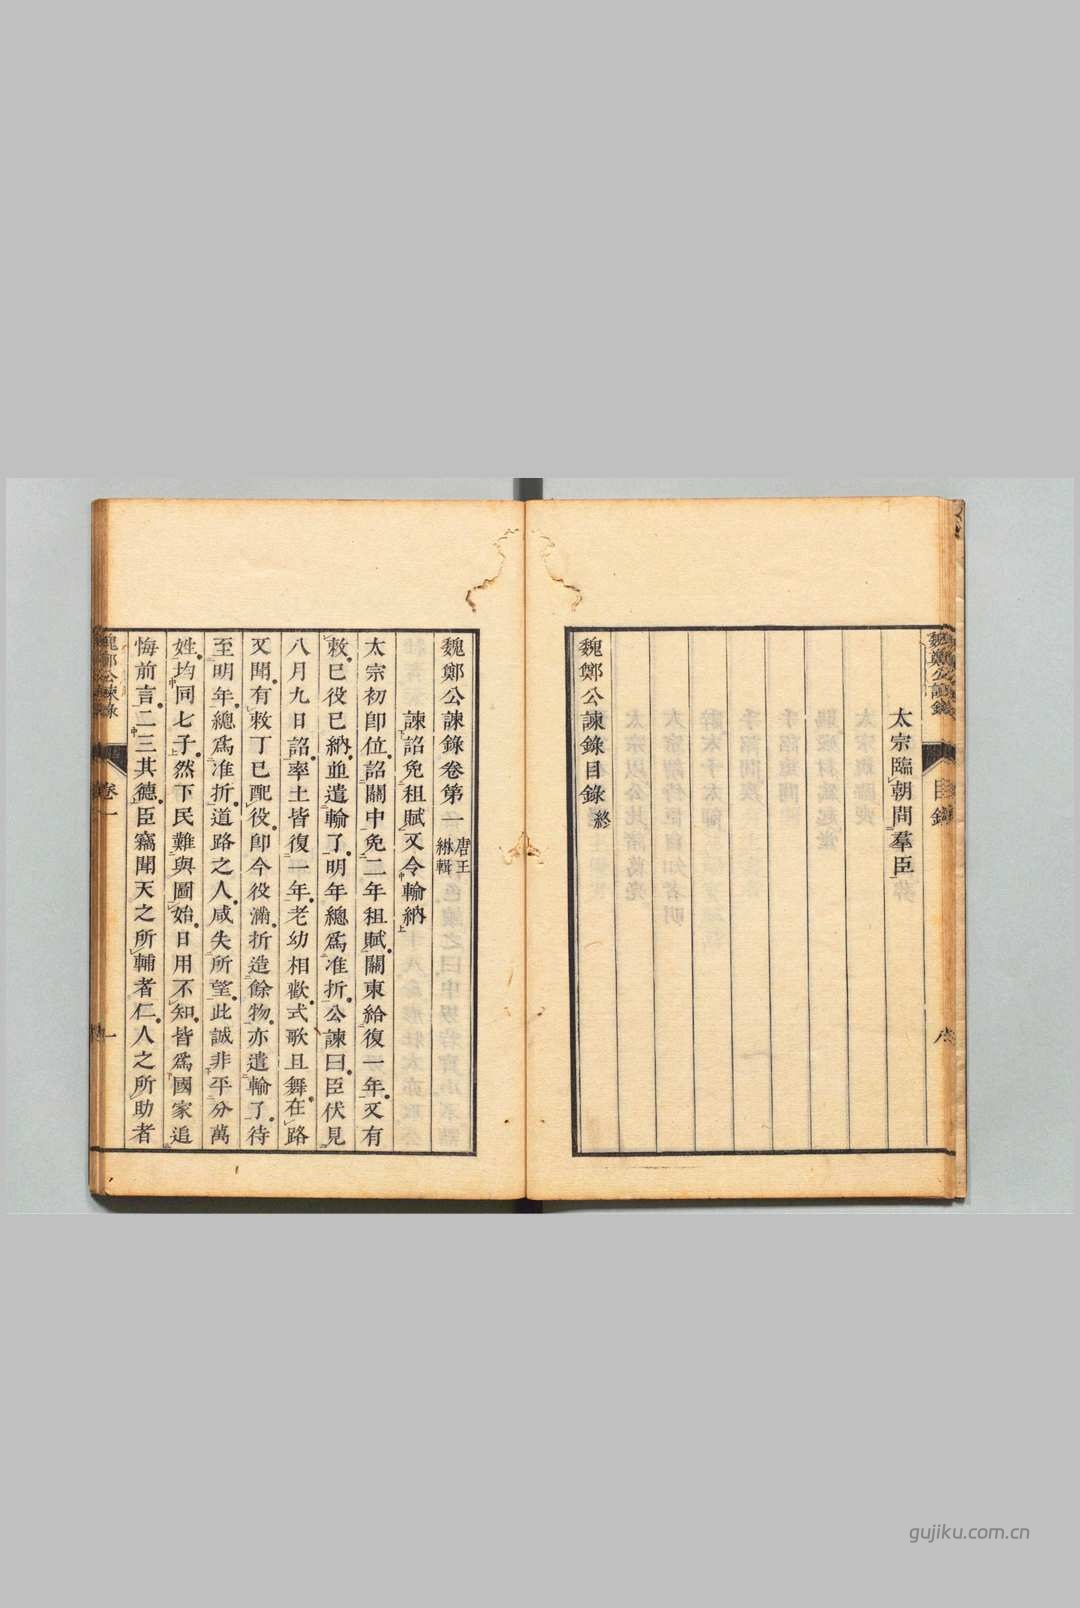 魏鄭公諫錄
目錄
太宗臨朝問羣臣
魏鄭公諫錄目錄終
魏鄭公諫錄卷第一 唐王綝輯
諫詔免租賦又令輸納
太宗初卽位詔關中免二年租賦關東給復一年又有
敕已役已納並遣輸了明年總爲准折公諫曰臣伏見
八月九日詔率土皆復一年老幼相歡式歌且舞在路
又聞有敕丁已配役卽令役滿折造餘物亦遣輸了待
至明年總爲准折道路之人咸失所望此誠非平分萬
姓均同七子然下民難與圖始日用不知皆爲國家追
悔前言二三其德臣竊聞天之所輔者仁人之所助者
魏鄭公諫錄
卷一
一
gujiku.com.cn